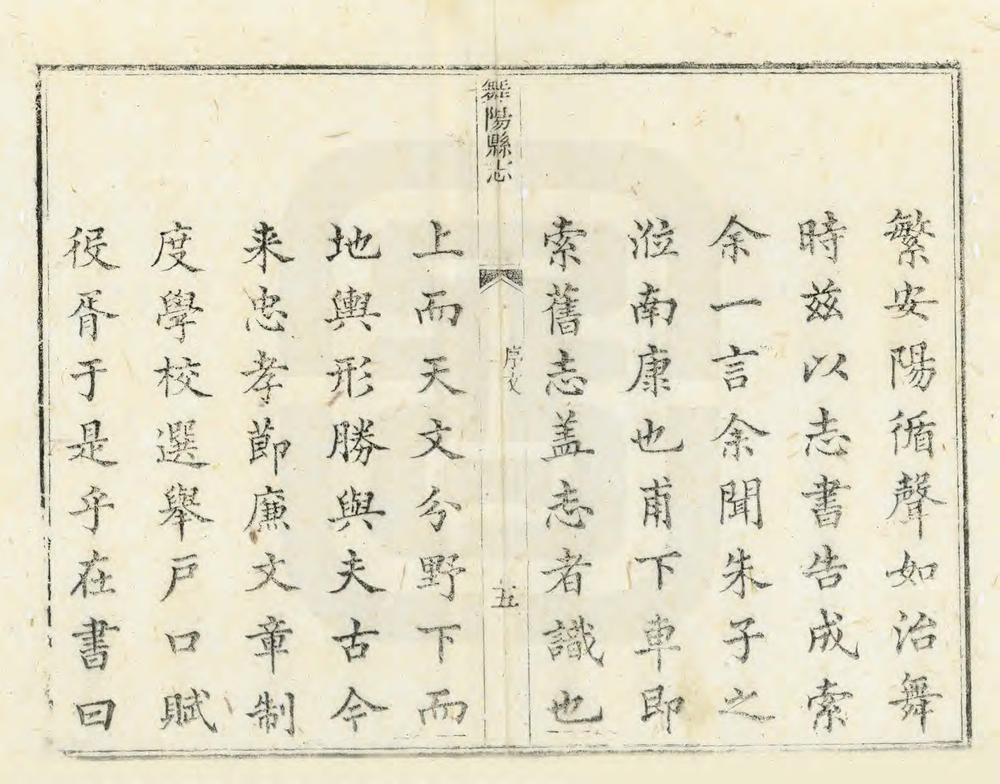 繁安陽循聲如治舞
時兹以志書告成索
余一言余聞朱子之
涖南康也甫下車即
索舊志盖志者識也
舞陽縣志
序文
五
上而天文分野下而
地輿形勝與夫古今
来忠孝節廉文章制
度學校選舉戸口賦
役胥于是乎在書曰